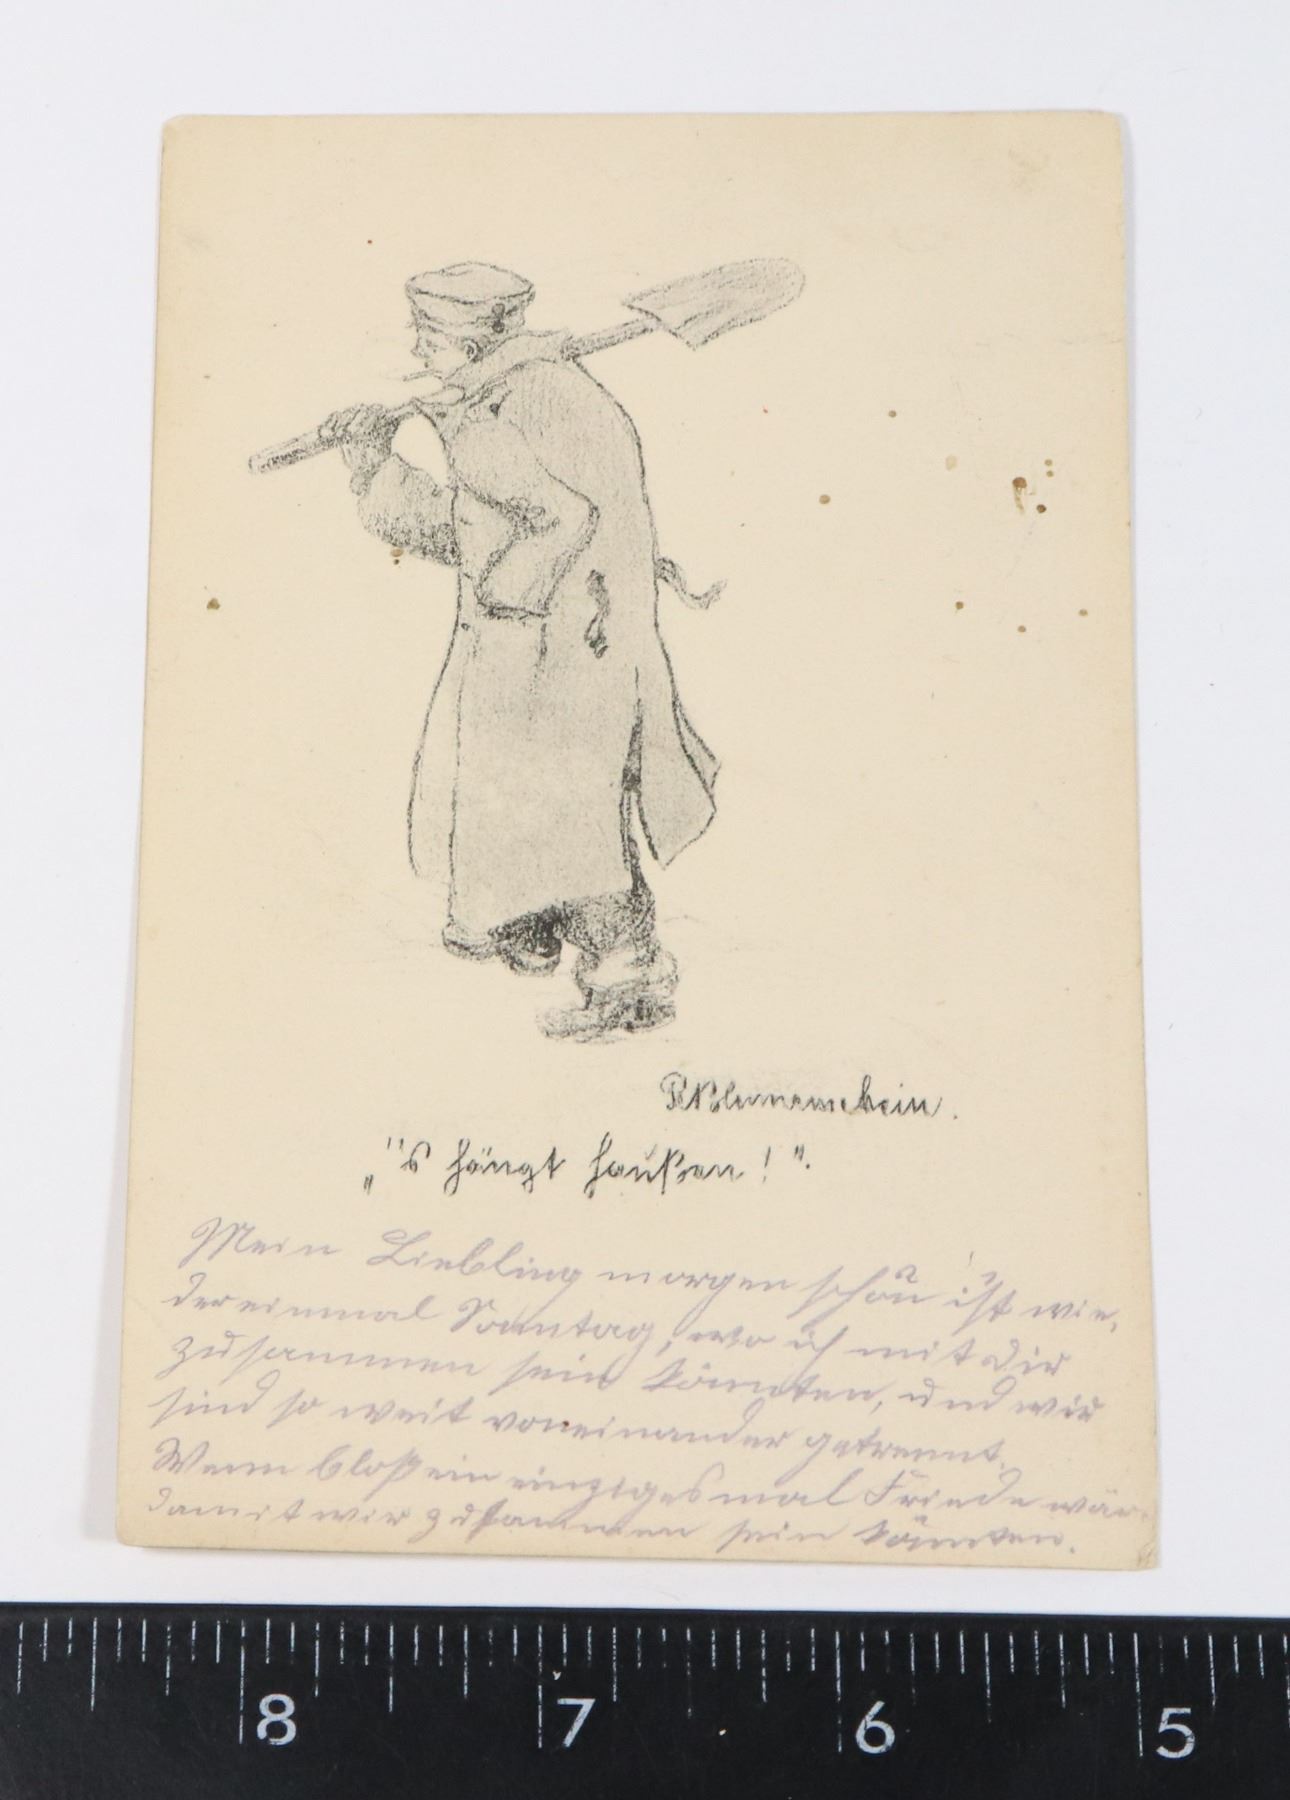 Blumenschein.
„'s hängt haußen!".
Mein Liebling morgen schon ist wie-
der einmal Sonntag, wo ich mit dir
zusammen sein könnten, und wir
sind so weit voneinander getrennt.
Wenn bloß ein einziges mal Friede wär
damit wir zusammen sein könnten.
8 7 6 5